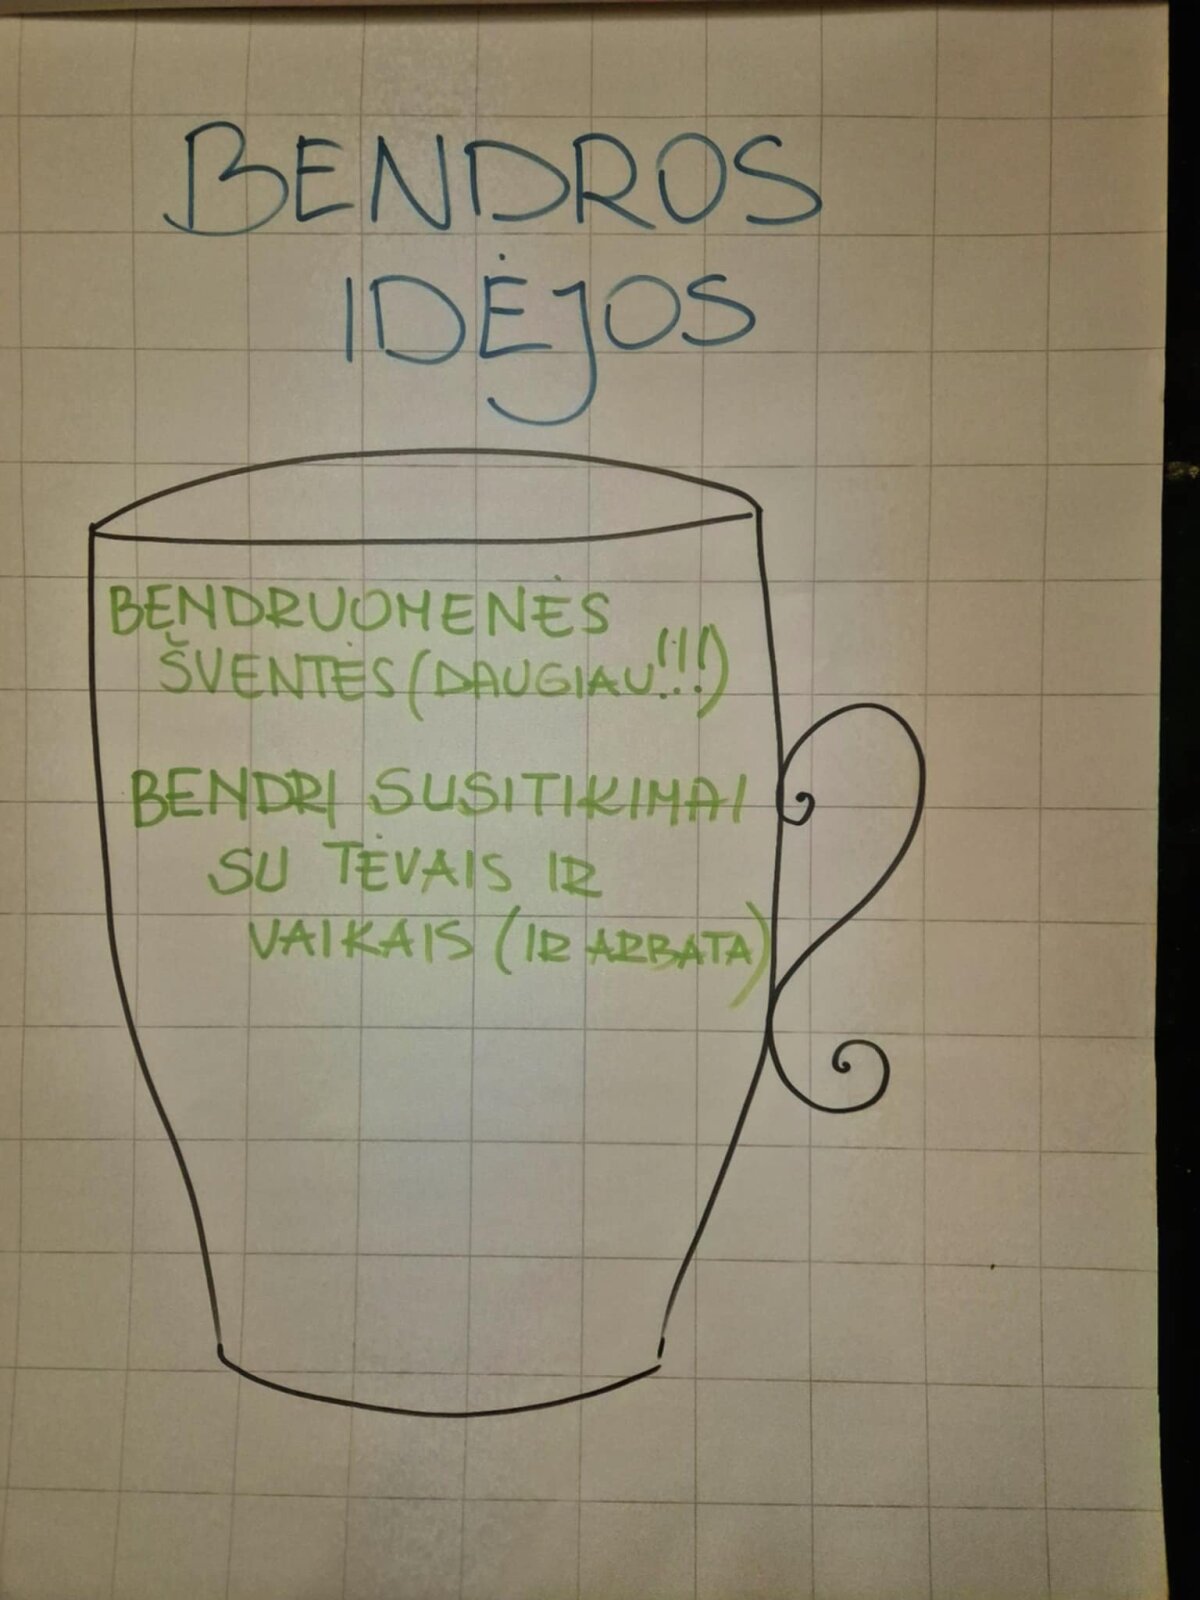 BENDROS
IDĖJOS
BENDRUOMENĖS
ŠVENTĖS (DAUGIAU!!!)
BENDRI SUSITIKIMAI
SU TĖVAIS IR
VAIKAIS (IR ARBATA)